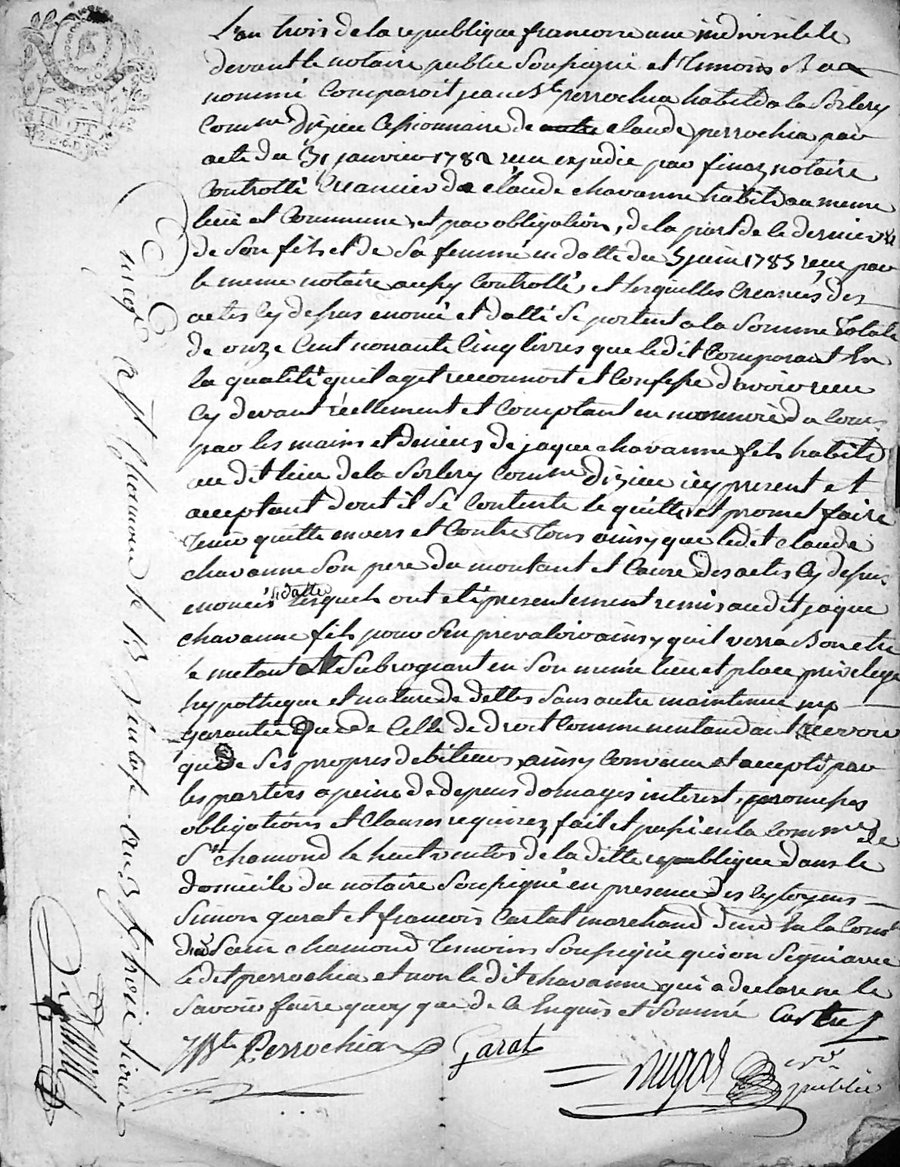 L'an trois de la republique francoise une indivisible
devant le notaire public soussigné et temoins Bas
nommé comparoit jean Bte perrochia habitt a la Sorlery
comme dizieu cessionnaire de claude perrochia par
acte du 31 janvier 1782 recu expedie par finaz notaire
controllé creancier de claude chavanne habitt au meme
lieu et commune, et par obligation, de la part de le dernier
de son fils et de sa femme en datte du 5 juin 1785 recu par
le meme notaire aussy controllé, et lesquelles creances des
actes cy dessus enoncé et datté se portent a la somme totale
de onze cent nonante cinq livres que ledit comparant en
la qualité qu'il aget reconnoit et confesse d'avoir recu
cy devant réellement et comptant en monnoie du cours
par les mains et deniers de jaque chavanne fils habitt
au dit lieu de la Sorlery comme dizieu icy present et
acceptant dont il se contente le quitte et promet faire
tenir quitte envers et contre tous ainsy que ledit claude
chavanne son pere du montant et cause des actes cy dessus
enoncés et datté lesquels ont eté presentement remis audit jaque
chavanne fils pour s'en prevaloir ainsy qu'il verra Bon etre
le metant et le subrogeant en son meme lieu et place privilege
hypotheque et nature de dettes sans autre maintenue ny
garantie que de celle de droit
que de ses propres debiteurs, ainsy convenu et accepté par
les parties a peine de depens domages interest, promesses
obligations et clauses requises, fait et passé en la comme de
St chamond le huit ventos de la ditte republique dans le
domicile du notaire soussigné en presence des cytoyens
Simon garat et francois cartat marchand en la come
de Saint chamond temoins soussigné qui ont signé avec
ledit perrochia et non le dit chavanne qui a declaré ne le
savoir faire quoy que de le enquis et sommé
JBte Perrochia
Garat
public
St Chamond le 13 ventose an 3